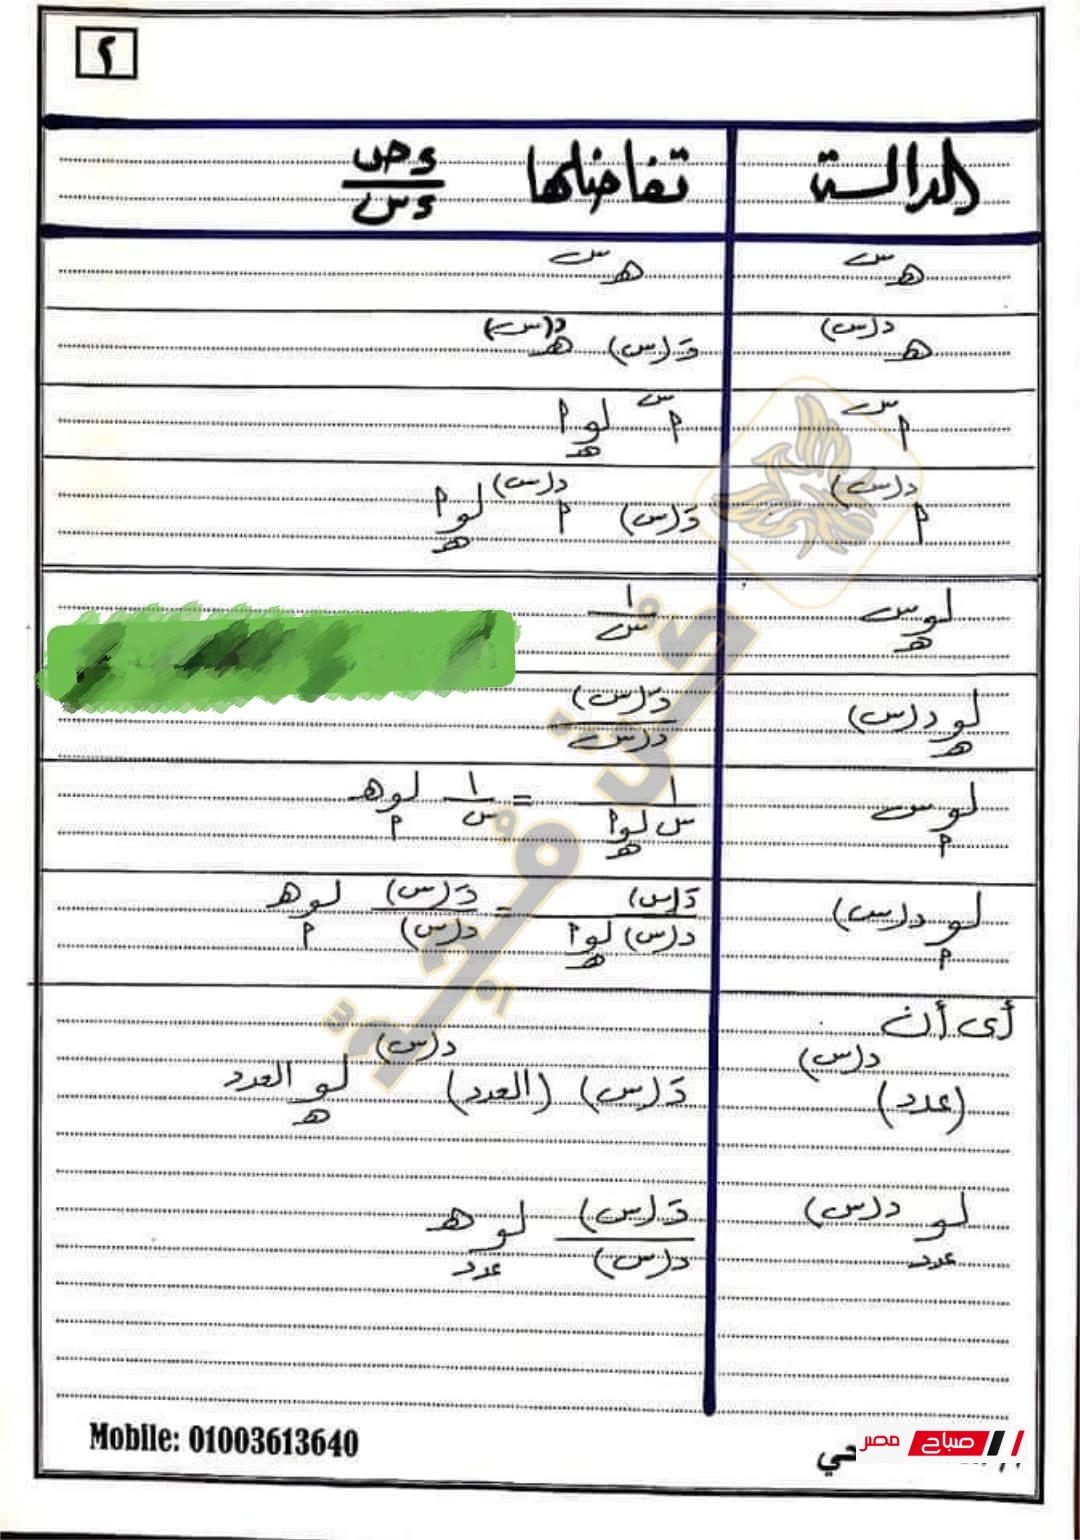 ٢
الدالة تفاضلها ءص/ءس
هـ^س هـ^س
هـ^د(س) دَ(س) هـ^د(س)
م^س م^س لو_هـ م
م^د(س) دَ(س) م^د(س) لو_هـ م
لو_هـ س ١/س
لو_هـ د(س) دَ(س)/د(س)
لو_م س ١/(س لو_هـ م) = ١/س لو_م هـ
لو_م د(س) دَ(س)/(د(س) لو_هـ م) = دَ(س)/د(س) لو_م هـ
أى أن
(عدد)^د(س) دَ(س) (العدد)^د(س) لو_هـ العدد
لو_عدد د(س) دَ(س)/د(س) لو_عدد هـ
Mobile: 01003613640
صباح مصر